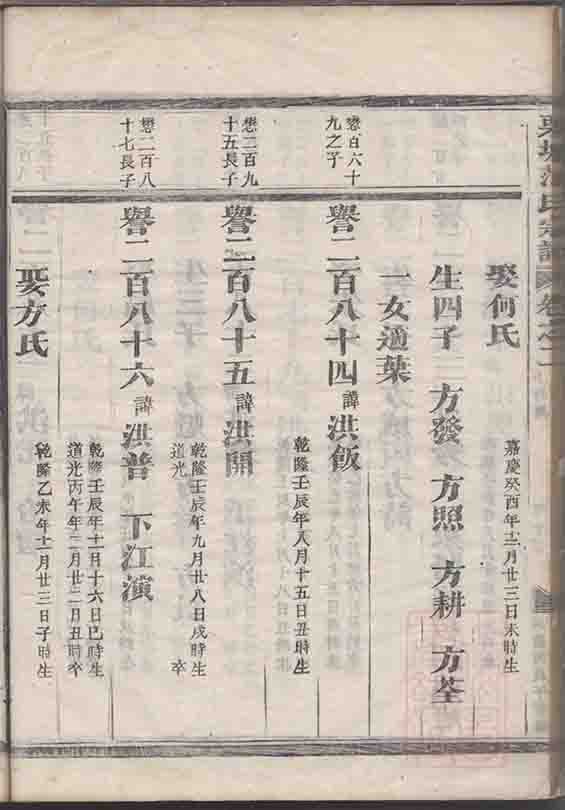 氏宗譜 卷之二
娶何氏
嘉慶癸酉年十二月廿三日未時生
生四子 方發 方照 方耕 方荃
一女適葉
懋百六十
九之子
譽二百八十四諱洪飯
乾隆壬辰年八月十五日丑時生
懋二百九
十五長子
譽二百八十五諱洪開
乾隆壬辰年九月廿八日戌時生
道光 卒
懋二百八
十七長子
譽二百八十六諱洪普 下江演
乾隆壬辰年十一月十六日巳時生
道光丙午年二月廿二日丑時卒
娶方氏
乾隆乙未年十一月廿三日子時生